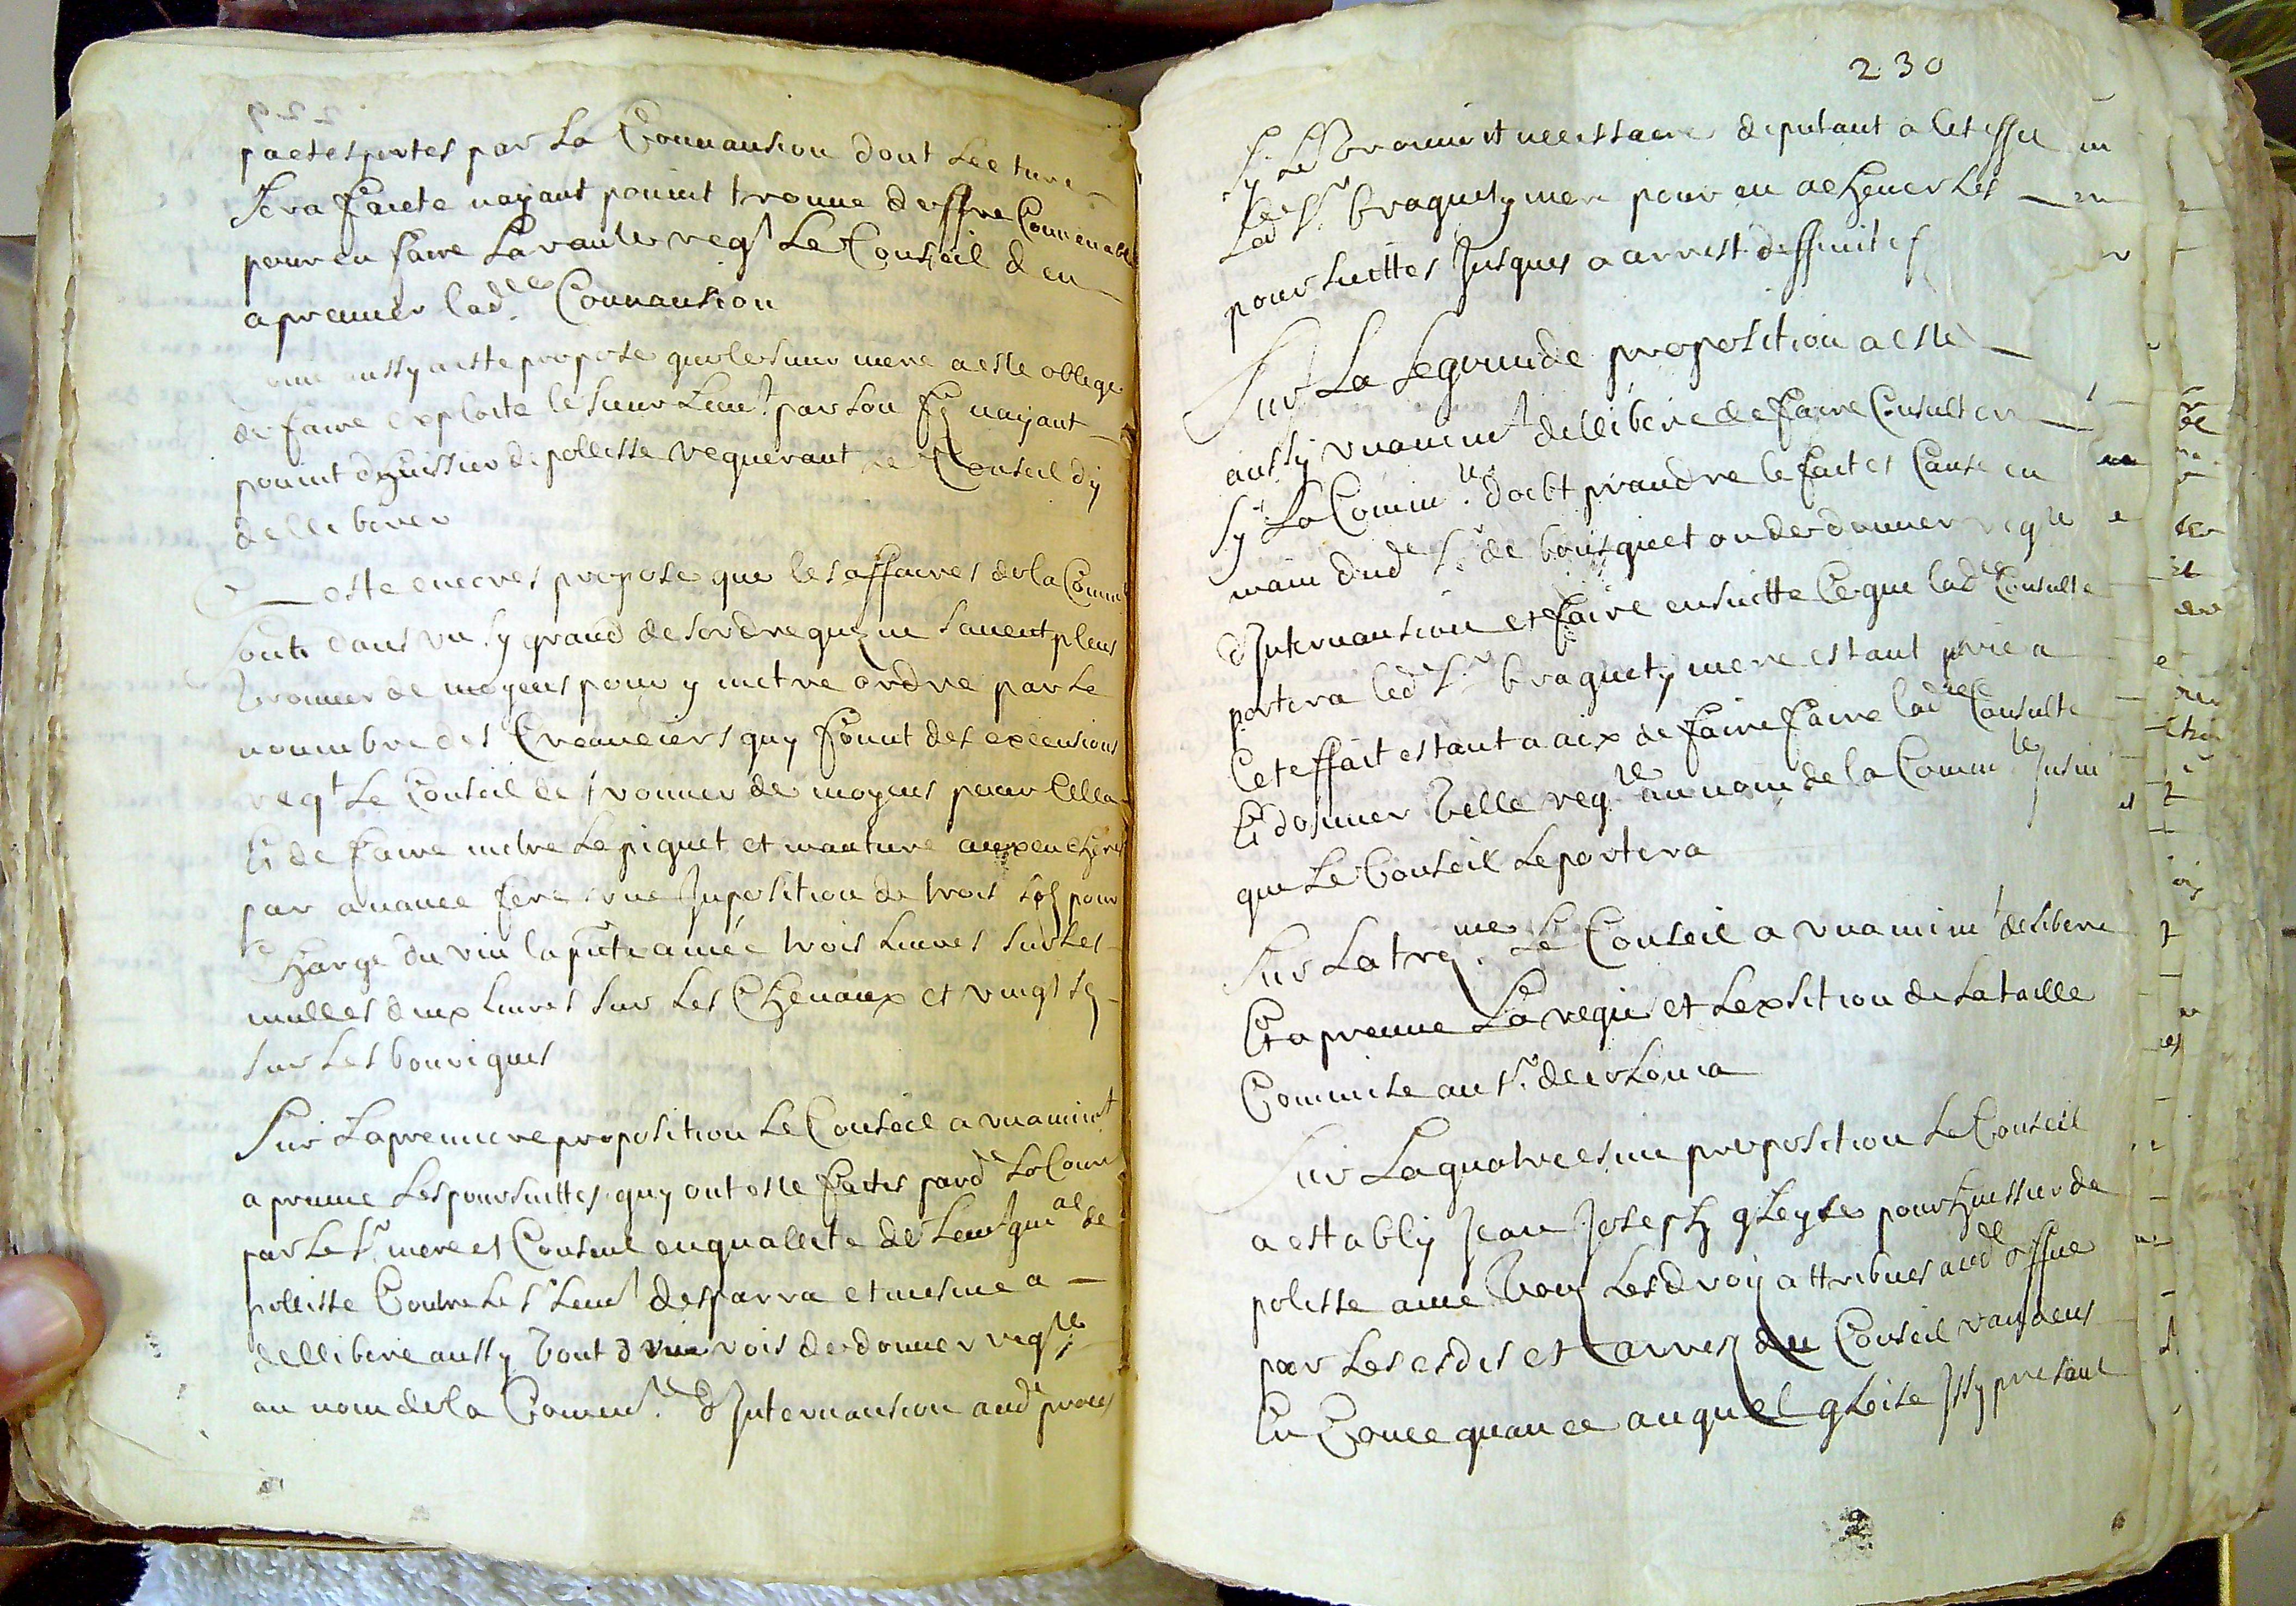 pactes portes par la Connansion dont lecture
sera faicte nayant pouint trouue doffre Connenable
pour en faire la vante reqt Le Conseil d en
apreuuer lad.e Connansion
aussy a este propose que le sieur mere a este oblige
de faire exploite le sieur Lieut. par son fy nayant
pouint dhuissier de pollisse requerant le Conseil dy
delliberer
este encores propose que les affaires de la Commté
sont dans vn sy grand desordre quy ne sauent plus
trouuer de moyens pour y metre ordre par le
noumbre des Creanciers quy fount des excensions
reqt Le Conseil de trouuer de moyens pour cella
Et de faire metre le piquet et mouture aux encheres
par auance fere vne Jnposition de trois sos pour
Charge du vin la pnte année trois liures sur les
mulles deux liures sur les Cheuaux et vingt ss
sur les bouriques
Sur la premiere proposition Le Conseil a vnamimt
apreuue les poursuittes quy ont este faictes pard.t la Cour
par le sr. mere et Consul en quallite de Lieut gnal de
pollisse Contre le sr Lieut desparra et mesme a
dellibere aussy tout d vne vois de donner reqte
au nom de la Commté. d Jnteruansion aud. proces
230
Sy Le trouuoit necessaire deputant a cet effet
Led sr. braguety mere pour en acheuer les
poursuittes Jusques a arrest deffinitif
Sur La segounde proposition a este
aussy vnamimt dellibere de faire Consulter
Sy La Commté. doibt prandre le fait et Cause en
main dud sr. de bousquet ou de donner reqte
d Jnteruansion et faire ensuitte Ce que lad. Consulte
portera led sr. braguety mere estant prie a
Cet effait estant a aix de faire faire lad. Consulte
Et donner telle reqte au nom de la Commté Jnsin
que Le Conseil le portera
Sur la troy.me Le Conseil a vnamimt delibere
Et apreuue La regie et Lexsition de la taille
Commise au sr. de
Sur La quatriesme proposition Le Conseil
a establiy Jean Joseph gleyse pour huissier de
polisse aue tous les droy attribues aud office
par les esdis et arres du Conseil randeus
En Consequance auquel gleise Jssy presant